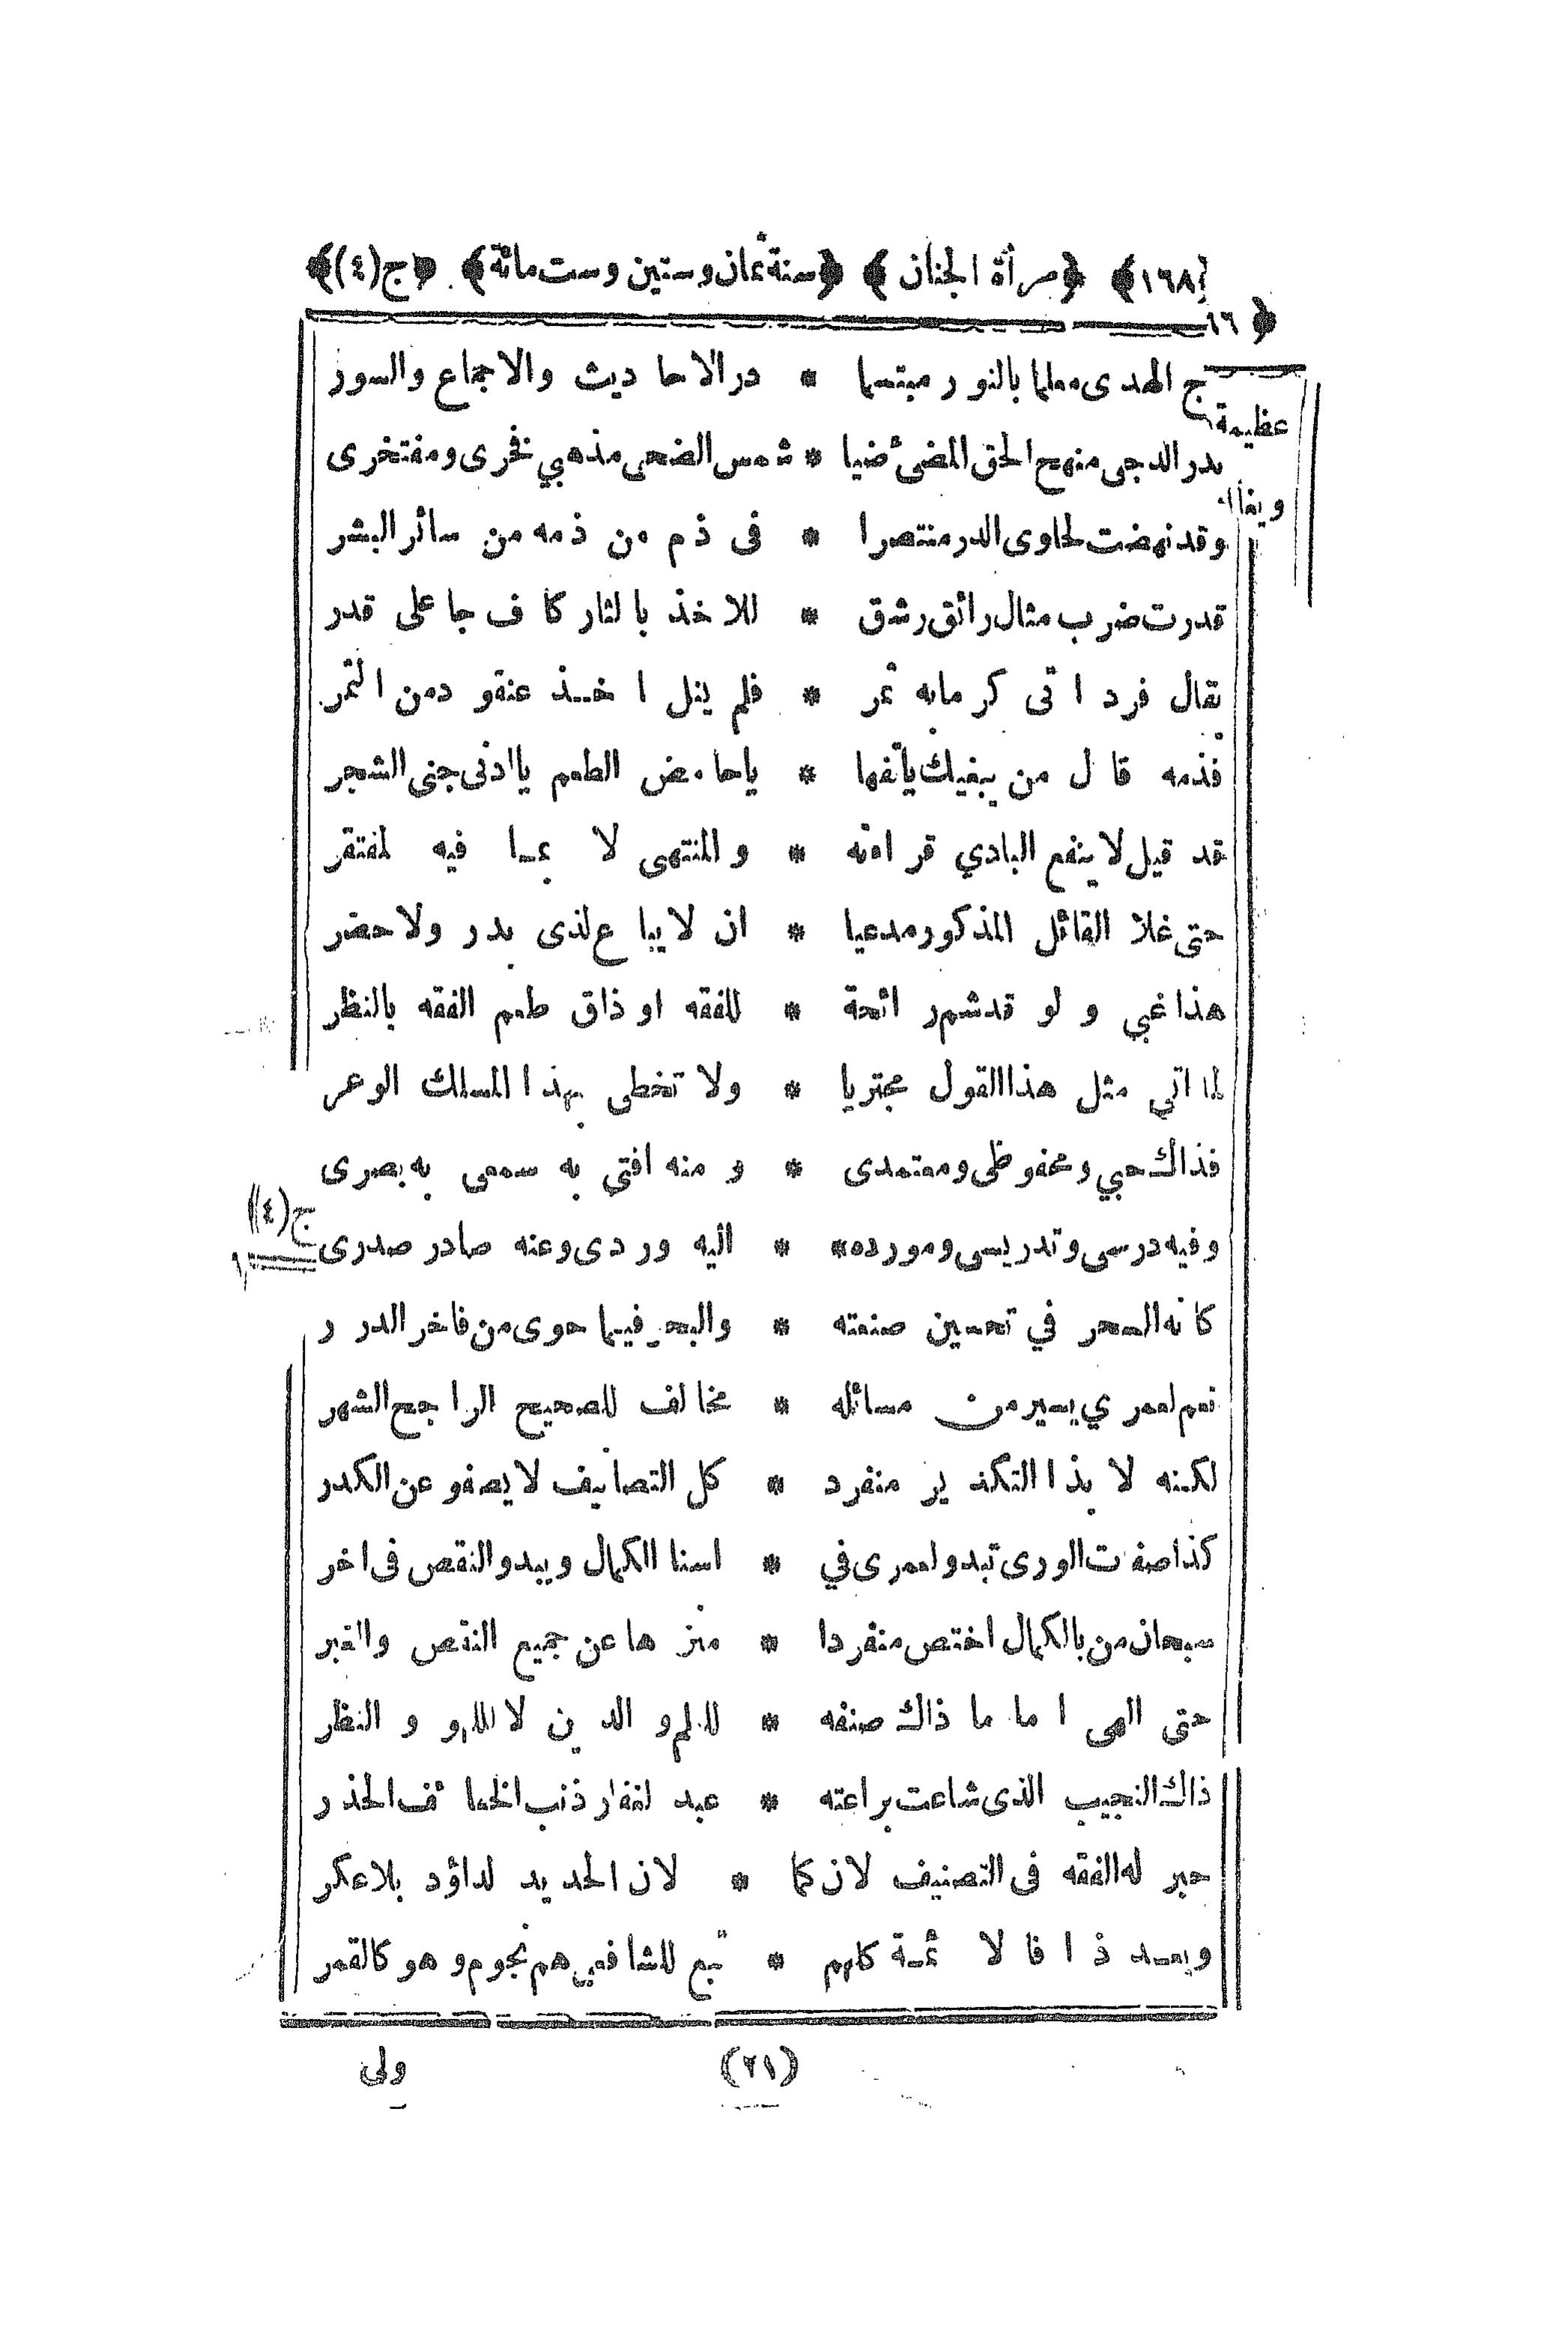 ﴿١٦٨﴾ ﴿مرأة الجنان﴾ ﴿سنة ثمان وستين وست مائة﴾ ﴿ج(٤)﴾
﴿١٦
ج الهدى معلما بالنور مبتسما * در الاحاديث والاجماع والسور
عظيمة
بدر الدجى منهج الحق المضئ ضيا * شمس الضحى مذهبي فخرى ومفتخرى
وقد نهضت لحاوى الدر منتصرا * فى ذم من ذمه من سائر البشر
قدرت ضرب مثال رائق رشق * للاخذ بالثار كاف جا على قدر
يقال فرد اتى كرما به ثمر * فلم ينل اخذ عنقود من الثمر
فذمه قال من يبغيك يا تفها * يا حامض الطعم يا ادنى جنى الشجر
قد قيل لا ينفع البادي قراءته * والمنتهى لا بما فيه لمفتقر
حتى غلا القائل المذكور مدعيا * ان لا يباع لذى بدر ولا حضر
هذا غبي ولو قد شم رائحة * للفقه او ذاق طعم الفقه بالنظر
لما اتي مثل هذا القول مجتريا * ولا تخطى بهذا المسلك الوعر
فذاك حبي ومحفوظى ومعتمدى * ومنه افتى به سمعى به بصرى
ج(٤)
وفيه درسى وتدريسى ومورده * اليه وردى وعنه صادر صدرى
كانه السحر في تحسين صنعته * والبحر فيما حوى من فاخر الدرر
نعم لعمري يسير من مسائله * مخالف للصحيح الراجح الشهر
لكنه لا بذا التكدير منفرد * كل التصانيف لا يصفو عن الكدر
كذا صفات الورى تبدو لعمرى في * اسنا الكمال ويبدو النقص فى اخر
سبحان من بالكمال اختص منفردا * منزها عن جميع النقص والغير
حتى الهى اماما ذاك صنفه * للعلم والدين لا للهو والنظر
ذاك النجيب الذى شاعت براعته * عبد لغفار ذنب الخائف الحذر
حبر له الفقه فى التصنيف لان كما * لان الحديد لداؤد بلا عكر
وبعد ذا فالائمة كلهم * تبع للشافعي هم نجوم وهو كالقمر
(٢١)
ولى